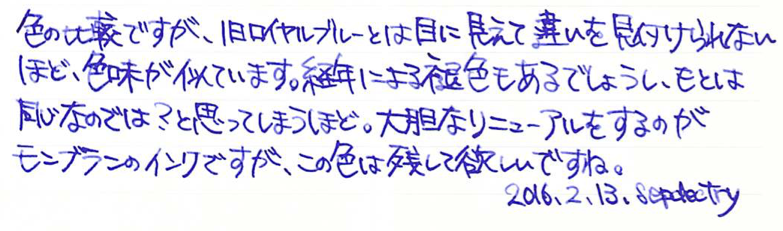 色の比較ですが、旧ロイヤルブルーとは目に見えて違いを見付けられない
ほど、色味が似ています。経年による褪色もあるでしょうし、もとは
同じなのでは？と思ってしまうほど。大胆なリニューアルをするのが
モンブランのインクですが、この色は残して欲しいですね。
2016.2.13.